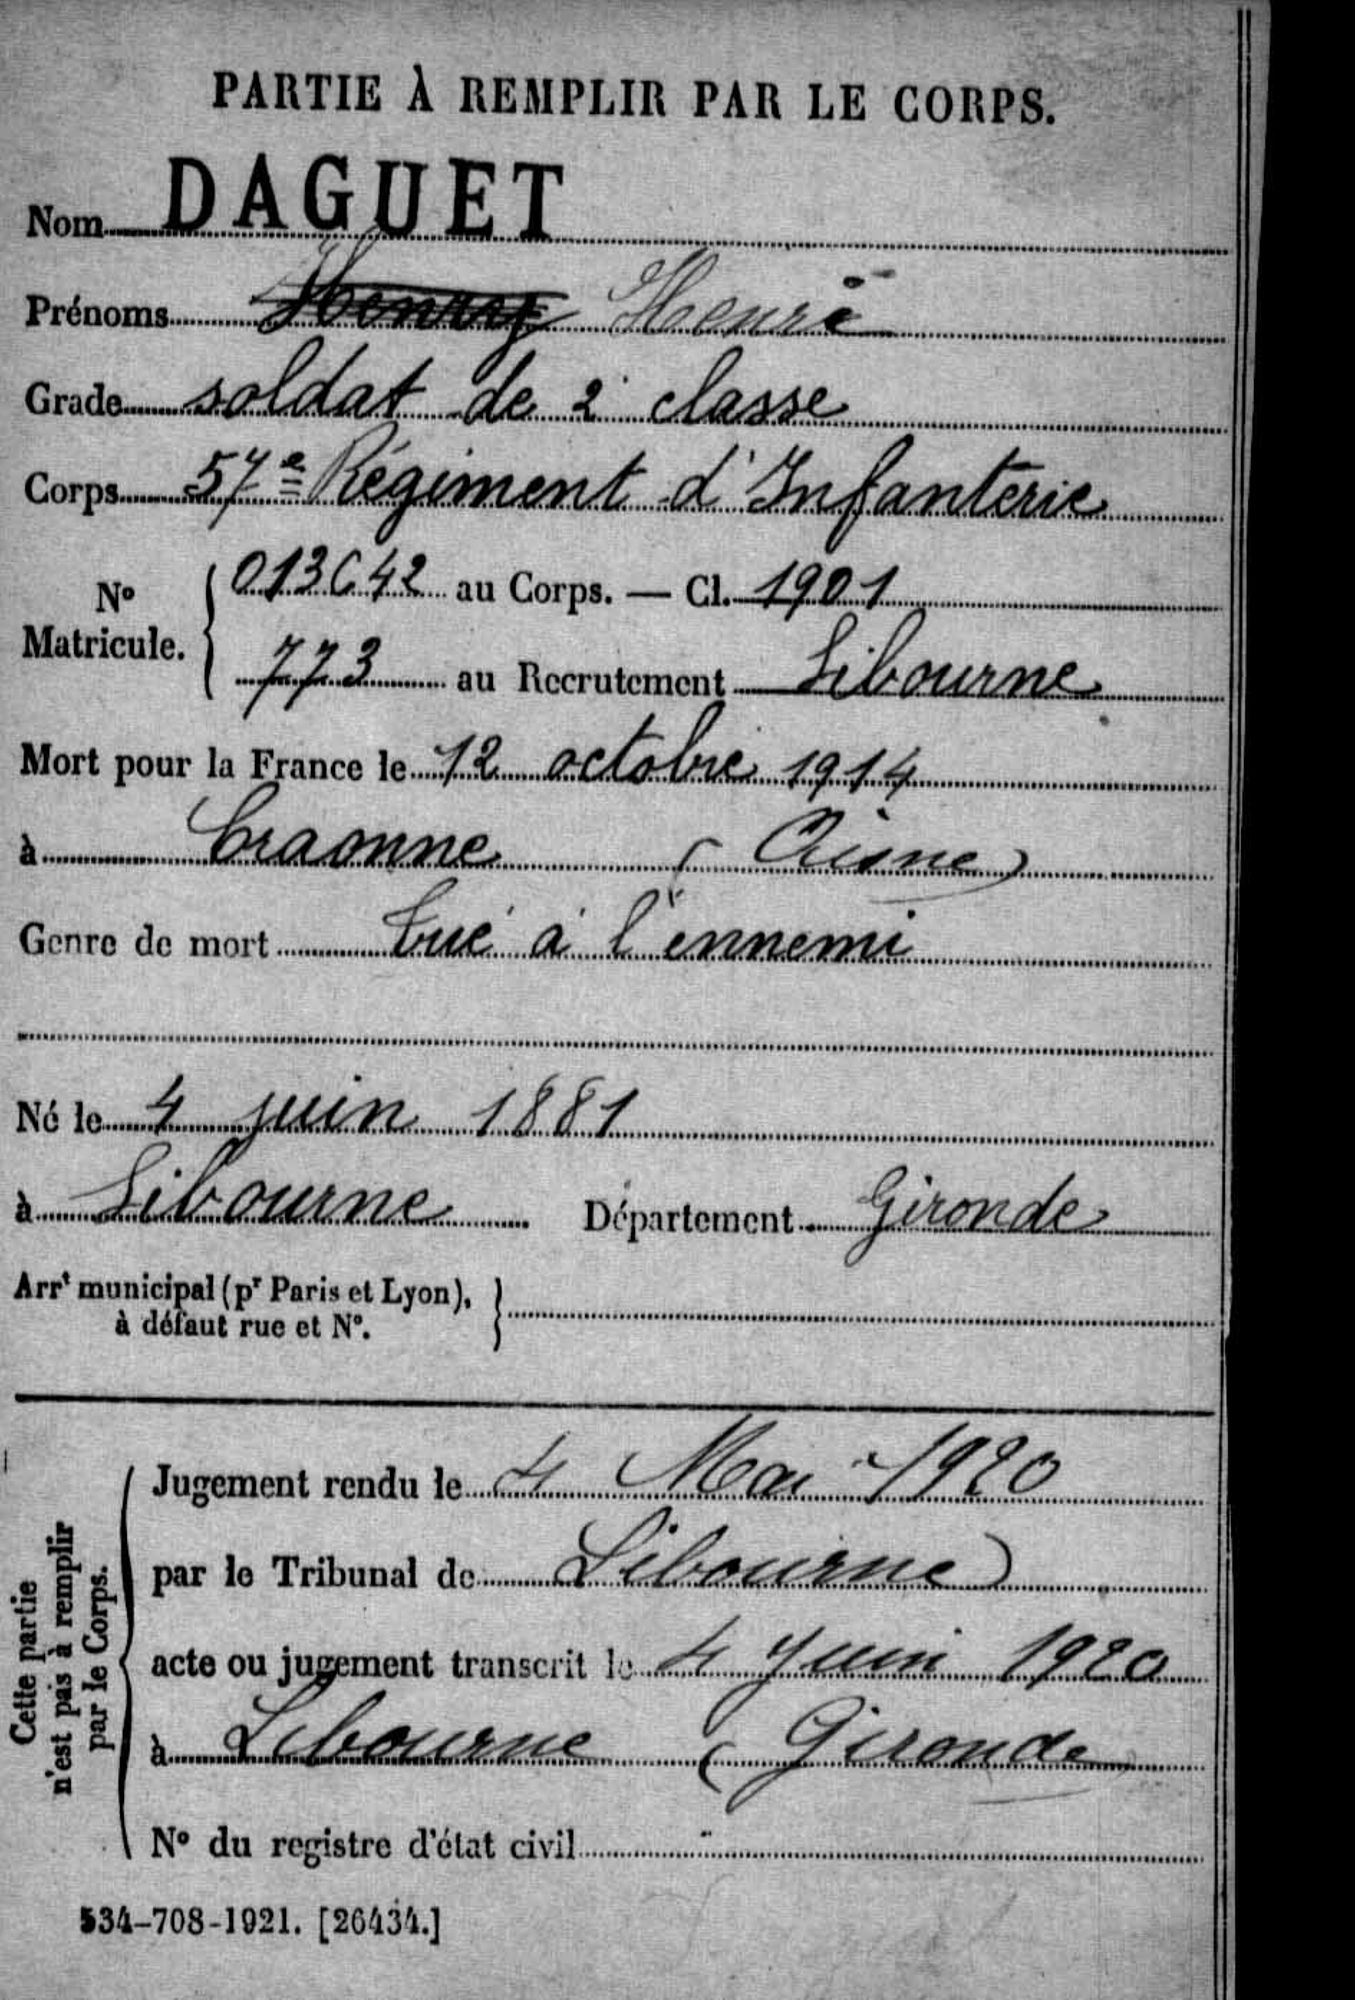 PARTIE À REMPLIR PAR LE CORPS.
Nom DAGUET
Prénoms Henry Henri
Grade soldat de 2e classe
Corps 57e Régiment d'Infanterie
No Matricule. 013C42 au Corps. — Cl. 1901
773 au Recrutement Libourne
Mort pour la France le 12 octobre 1914
à Craonne (Aisne)
Genre de mort tué à l'ennemi
Né le 4 juin 1881
à Libourne Département Gironde
Arrt municipal (pr Paris et Lyon),
à défaut rue et No.
Cette partie
n'est pas à remplir
par le Corps.
Jugement rendu le 4 Mai 1920
par le Tribunal de Libourne)
acte ou jugement transcrit le 4 Juin 1920
à Libourne (Gironde)
No du registre d'état civil
534-708-1921. [26434.]